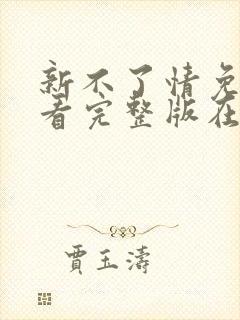 新不了情免
看完整版在
賈玉濤